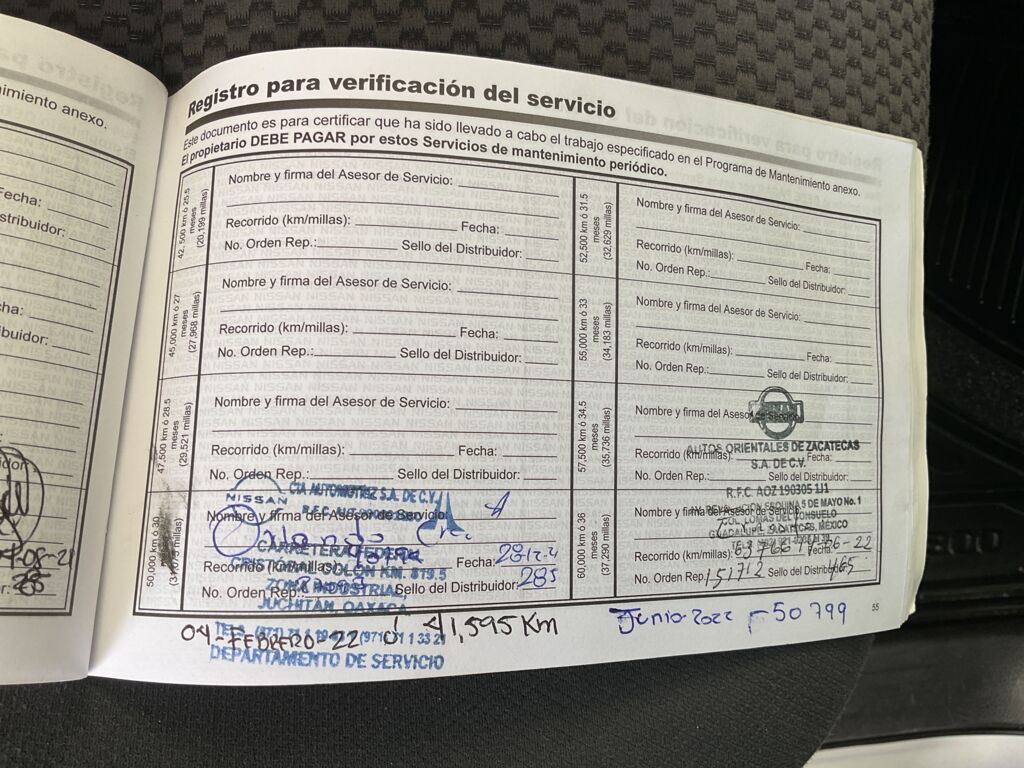 nimiento anexo.
Fecha:
stribuidor:
ha:
buidor:
idor:
Registro para verificación del servicio
Este documento es para certificar que ha sido llevado a cabo el trabajo especificado en el Programa de Mantenimiento anexo.
El propietario DEBE PAGAR por estos Servicios de mantenimiento periódico.
42,500 km ó 25.5
meses
(20,199 millas)
Nombre y firma del Asesor de Servicio:
Recorrido (km/millas): Fecha:
No. Orden Rep.: Sello del Distribuidor:
45,000 km ó 27
meses
(27,968 millas)
Nombre y firma del Asesor de Servicio:
Recorrido (km/millas): Fecha:
No. Orden Rep.: Sello del Distribuidor:
47,500 km ó 28.5
meses
(29,521 millas)
Nombre y firma del Asesor de Servicio:
Recorrido (km/millas): Fecha:
No. Orden Rep.: Sello del Distribuidor:
50,000 km ó 30
Nombre y firma del Asesor de Servicio:
Recorrido (km/millas): Fecha:
No. Orden Rep.: Sello del Distribuidor: 285
NISSAN
CIA AUTOMOTRIZ S.A. DE C.V.
CARRETERA FEDERAL
CRISTOBAL COLON KM. 819.5
ZONA INDUSTRIAL
JUCHITAN, OAXACA
DEPARTAMENTO DE SERVICIO
04-FEBRERO-22 ó 41,595 Km
52,500 km ó 31.5
meses
(32,629 millas)
Nombre y firma del Asesor de Servicio:
Recorrido (km/millas): Fecha:
No. Orden Rep.: Sello del Distribuidor:
55,000 km ó 33
meses
(34,183 millas)
Nombre y firma del Asesor de Servicio:
Recorrido (km/millas): Fecha:
No. Orden Rep.: Sello del Distribuidor:
57,500 km ó 34.5
meses
(35,736 millas)
Nombre y firma del Asesor de Servicio:
Recorrido (km/millas): Fecha:
No. Orden Rep.: Sello del Distribuidor:
NISSAN
AUTOS ORIENTALES DE ZACATECAS
S.A. DE C.V.
R.F.C. AOZ 190305 1J1
60,000 km ó 36
meses
(37,290 millas)
Nombre y firma del Asesor de Servicio:
ESQUINA 5 DE MAYO No. 1
COL. LOMAS DEL CONSUELO
GUADALUPE, ZACATECAS, MÉXICO
Recorrido (km/millas): 63766 Fecha:
No. Orden Rep.: 151712 Sello del Distribuidor: 465
Junio-2022 50 799
55